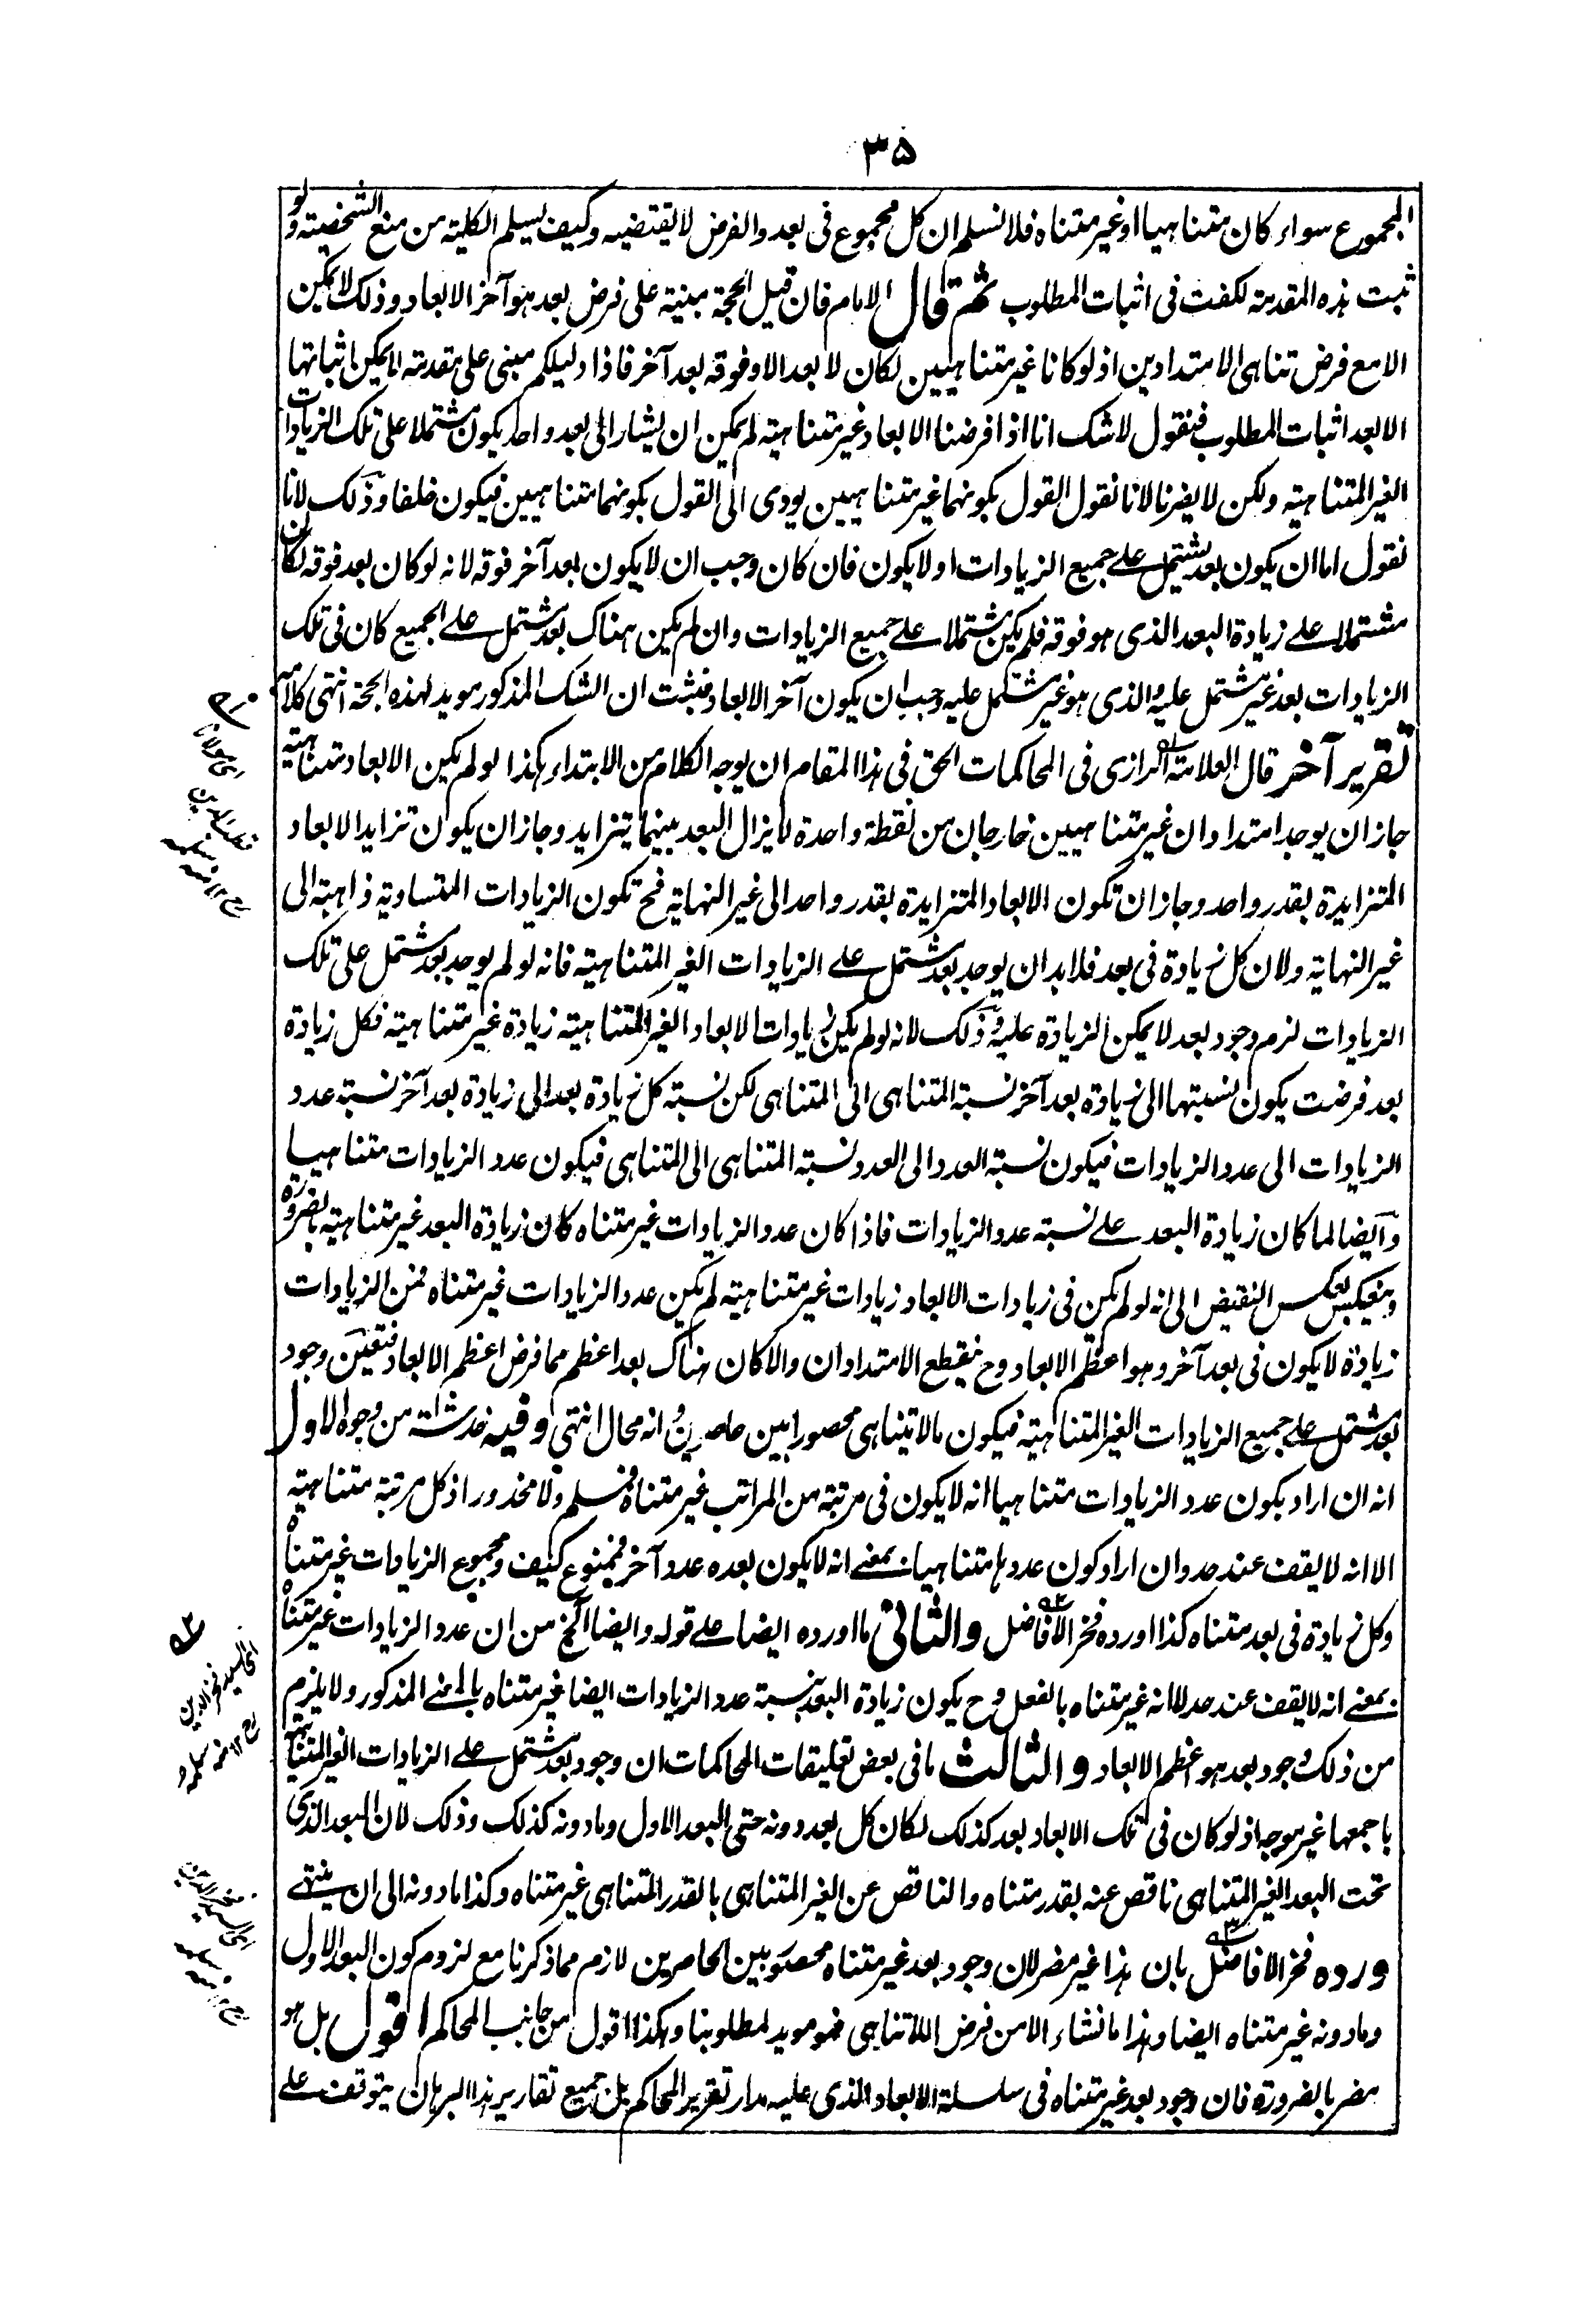 ٣٥
المجموع سواء كان متناهيا او غير متناه فلا نسلم ان كل مجموع فى بعد والفرض لا يقتضيه وكيف يسلم الكلية من منع الشخصية ولو
ثبت هذه المقدمة لكفت فى اثبات المطلوب ثم قال الامام فان قيل الحجة مبنية على فرض بعد هو آخر الابعاد وذلك لا يمكن
الا مع فرض تناهى الامتدادين اذ لو كانا غير متناهيين لكان لا بعد الا وفوقه بعد آخر فاذا دليلكم مبنى على مقدمة لا يمكن اثباتها
الا بعد اثبات المطلوب فنقول لا شك انا اذا فرضنا الابعاد غير متناهية لم يمكن ان يشار الى بعد واحد يكون مشتملا على تلك الزيادات
الغير المتناهية ولكن لا يضرنا لانا نقول القول بكونهما غير متناهيين يودى الى القول بكونهما متناهيين فيكون خلفا وذلك لانا
نقول اما ان يكون بعد يشتمل على جميع الزيادات او لا يكون فان كان وجب ان لا يكون بعد آخر فوقه لانه لو كان بعد فوقه لكان
مشتملا على زيادة البعد الذى هو فوقه فلم يكن مشتملا على جميع الزيادات وان لم يكن هناك بعد مشتمل على الجميع كان فى تلك
الزيادات بعد غير مشتمل عليه والذى هو غير مشتمل عليه وجب ان يكون آخر الابعاد فثبت ان الشك المذكور مويد لهذه الحجة انتهى كلامه
تقرير آخر قال العلامة الرازى فى المحاكمات الحق فى هذا المقام ان يوجه الكلام من الابتداء هكذا لو لم يكن الابعاد متناهية
جاز ان يوجد امتدادان غير متناهيين خارجان من نقطة واحدة لا يزال البعد بينهما يتزايد وجاز ان يكون تزايد الابعاد
المتزايدة بقدر واحد وجاز ان تكون الابعاد المتزايدة بقدر واحد الى غير النهاية فح تكون الزيادات المتساوية ذاهبة الى
غير النهاية ولان كل زيادة فى بعد فلا بد ان يوجد بعد مشتمل على الزيادات الغير المتناهية فانه لو لم يوجد بعد مشتمل على تلك
الزيادات لزم وجود بعد لا يمكن الزيادة عليه وذلك لانه لو لم يكن زيادات الابعاد الغير المتناهية زيادة غير متناهية فكل زيادة
بعد فرضت يكون نسبتها الى زيادة بعد آخر نسبة المتناهى الى المتناهى لكن نسبة كل زيادة بعد الى زيادة بعد آخر نسبة عدد
الزيادات الى عدد الزيادات فيكون نسبة العدد الى العدد نسبة المتناهى الى المتناهى فيكون عدد الزيادات متناهيا
وايضا لما كان زيادة البعد على نسبة عدد الزيادات فاذا كان عدد الزيادات غير متناه كان زيادة البعد غير متناهية بالضرورة
وينعكس بعكس النقيض الى انه لو لم يكن فى زيادات الابعاد زيادات غير متناهية لم يكن عدد الزيادات غير متناه فمن الزيادات
زيادة لا يكون فى بعد آخر وهو اعظم الابعاد وح ينقطع الامتدادان والا كان هناك بعد اعظم مما فرض اعظم الابعاد فتعين وجود
بعد مشتمل على جميع الزيادات الغير المتناهية فيكون ما لا يتناهى محصورا بين حاصرين وانه محال انتهى وفيه خدشات من وجوه الاول
انه ان اراد بكون عدد الزيادات متناهيا انه لا يكون فى مرتبة من المراتب غير متناه فمسلم ولا محذور اذ كل مرتبة متناهية
الا انه لا يقف عند حد وان اراد كون عددها متناهيا بمعنى انه لا يكون بعده عدد آخر فممنوع كيف ومجموع الزيادات غير متناه
وكل زيادة فى بعد متناه كذا اورده فخر الافاضل والثانى ما اورده ايضا على قوله وايضا الخ من ان عدد الزيادات غير متناه
بمعنى انه لا يقف عند حد لا انه غير متناه بالفعل وح يكون زيادة البعد بنسبة عدد الزيادات ايضا غير متناه بالمعنى المذكور ولا يلزم
من ذلك وجود بعد هو اعظم الابعاد والثالث ما فى بعض تعليقات المحاكمات ان وجود بعد مشتمل على الزيادات الغير المتناهية
باجمعها غير موجه اذ لو كان فى تلك الابعاد بعد كذلك لكان كل بعد دونه حتى البعد الاول وما دونه كذلك وذلك لان البعد الذى
تحت البعد الغير المتناهى ناقص عنه بقدر متناه والناقص عن الغير المتناهى بالقدر المتناهى غير متناه وكذا ما دونه الى ان ينتهى
ورده فخر الافاضل بان هذا غير مضر لان وجود بعد غير متناه محصور بين الحاصرين لازم مما ذكرنا مع لزوم كون البعد الاول
وما دونه غير متناه ايضا وهذا ما نشاء الا من فرض اللاتناهى فهو مويد لمطلوبنا وهكذا اقول من جانب المحاكم اقول بل هو
مضر بالضرورة فان وجود بعد غير متناه فى سلسلة الابعاد الذى عليه مدار تقرير المحاكم بل جميع تقارير هذا البرهان يتوقف على
اى مولانا
قطب الدين
اى السيد فخر الدين
اى السيد فخر الدين